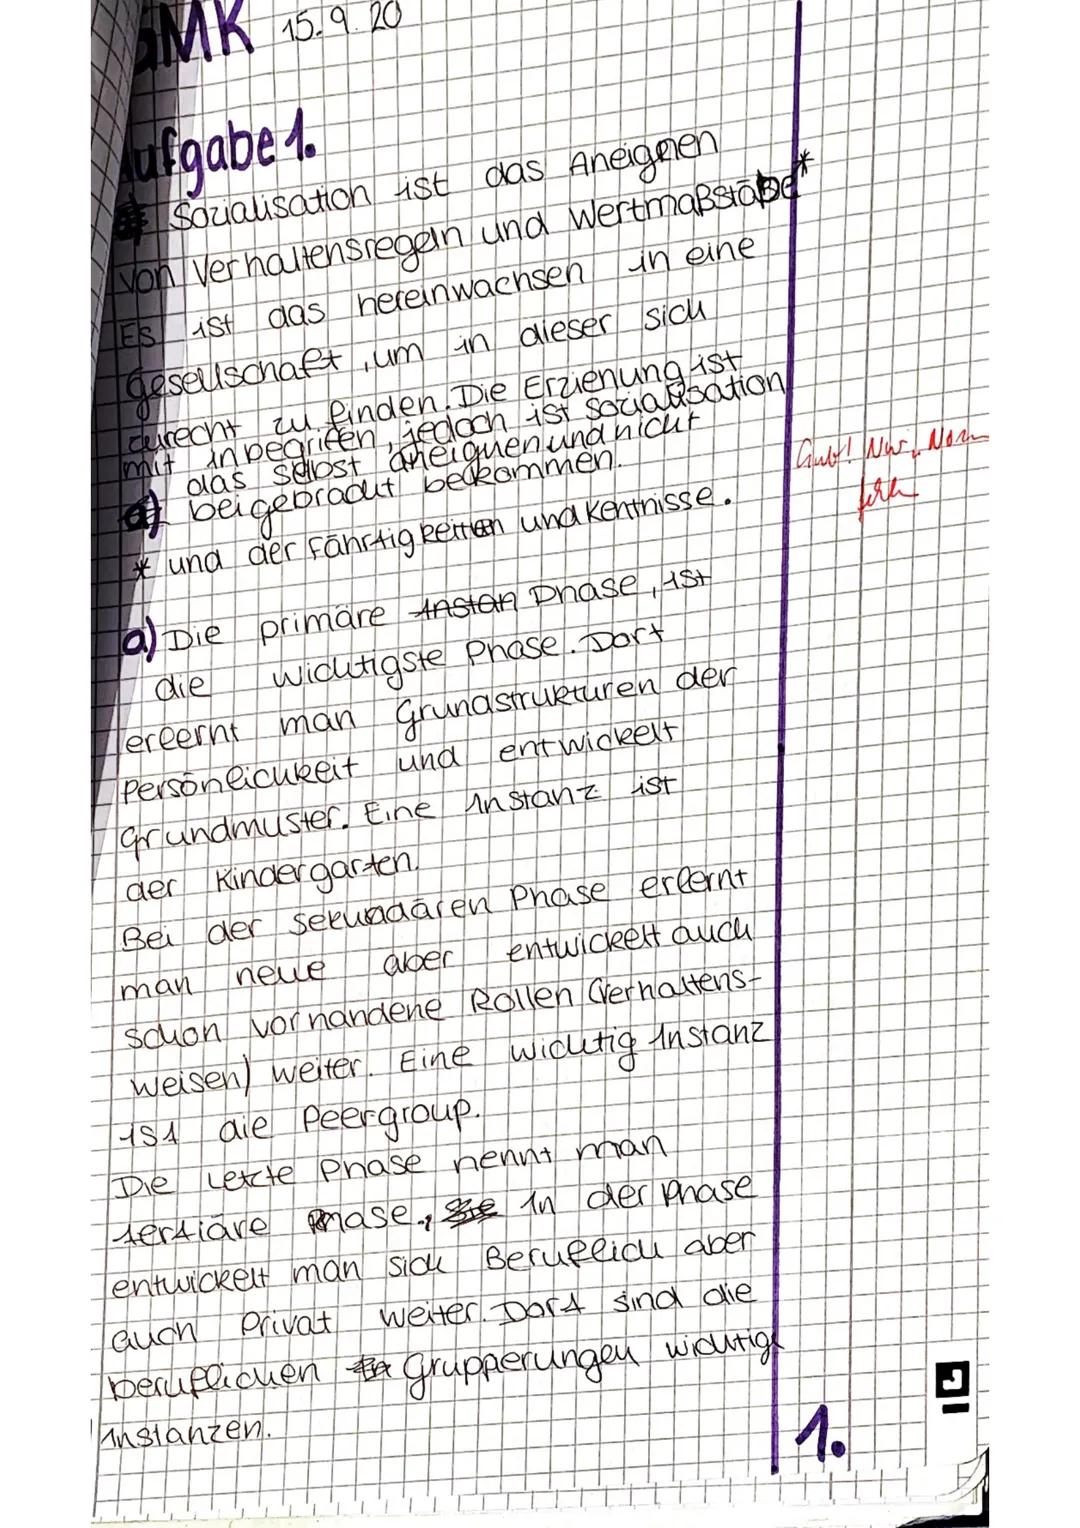 GMK 15.9.20
Aufgabe 1.
Sozialisation ist das Aneignen
von Verhaltensregeln und Wertmaßstäbe*
Es ist das hereinwachsen in eine
gesellschaft, um in dieser sich
zurecht zu finden. Die Erziehung ist
mit inbegriffen, jedoch ist sozialisation
das selbst aneignen und nicht
beigebracht bekommen.
* und der Fährtigkeiten und kentnisse.
Gut! Nur
a) Die primäre Instan Phase, ist
die wichtigste Phase. Dort
erlernt man Grundstrukturen der
Persönlichkeit und entwickelt
Grundmuster. Eine Instanz ist
der Kindergarten.
Bei der sekundären Phase erlernt
man neue aber entwickelt auch
schon vorhandene Rollen (Verhaltens-
weisen) weiter. Eine wichtig Instanz
ist die Peergroup.
Die letzte Phase nennt man
tertiäre Phase, Sie In der Phase
entwickelt man sich Beruflich aber
auch Privat weiter. Dort sind die
beruflichen Grupperungen wichtige
Instanzen.
1.